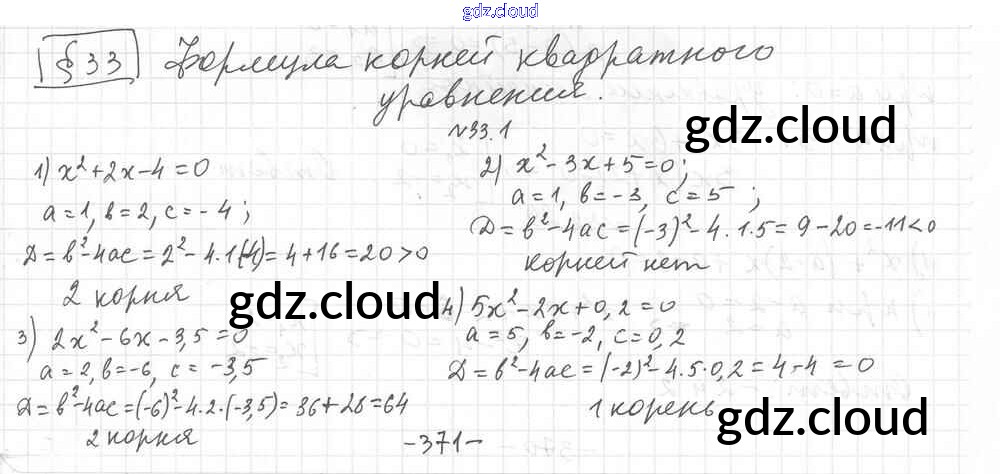 gdz.cloud
§33 Формула корней квадратного
уравнения.
№33.1
gdz.cloud
1) x²+2x-4=0
a=1, b=2, c=-4;
D=b²-4ac=2²-4.1(-4)=4+16=20>0
2 корня
2) x²-3x+5=0;
a=1, b=-3, c=5;
D=b²-4ac=(-3)²-4.1.5=9-20=-11<0
корней нет
gdz.cloud
3) 2x²-6x-3,5=0
a=2, b=-6, c=-3,5
D=b²-4ac=(-6)²-4.2.(-3,5)=36+28=64
2 корня
4) 5x²-2x+0,2=0
a=5, b=-2, c=0,2
D=b²-4ac=(-2)²-4.5.0,2=4-4=0
1 корень
gdz.cloud
-371-